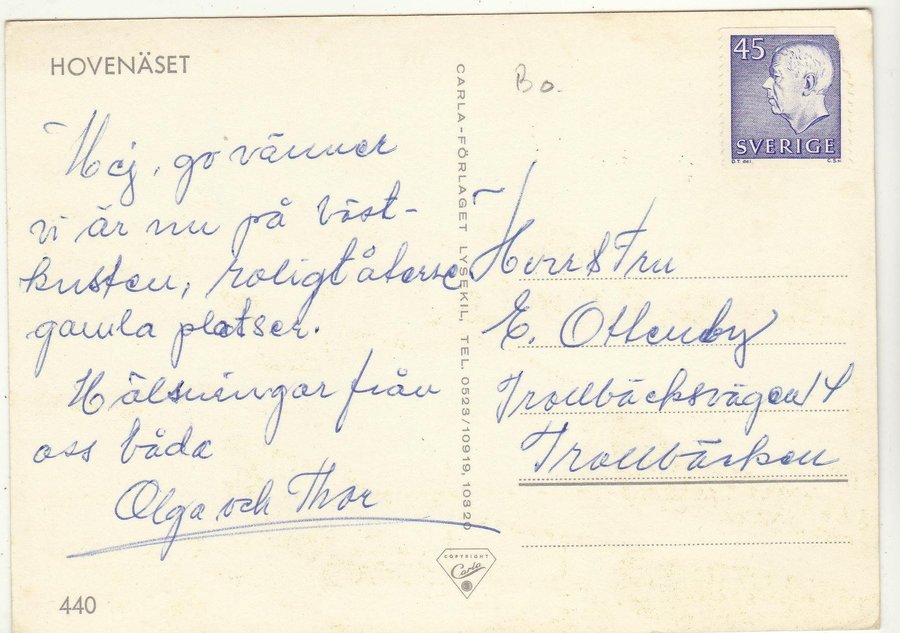 HOVENÄSET
Hej, go vänner
vi är nu på väst-
kusten, roligt återse
gamla platser.
Hälsningar från
oss båda
Olga och Thor
440
CARLA-FÖRLAGET LYSEKIL, TEL. 0523/10919, 10320
COPYRIGHT
Carla
Bo.
45
SVERIGE
D.T. del.
C.S. sc
Herr & Fru
E. Ottenby
Trollbäcksvägen 14
Trollbäcken